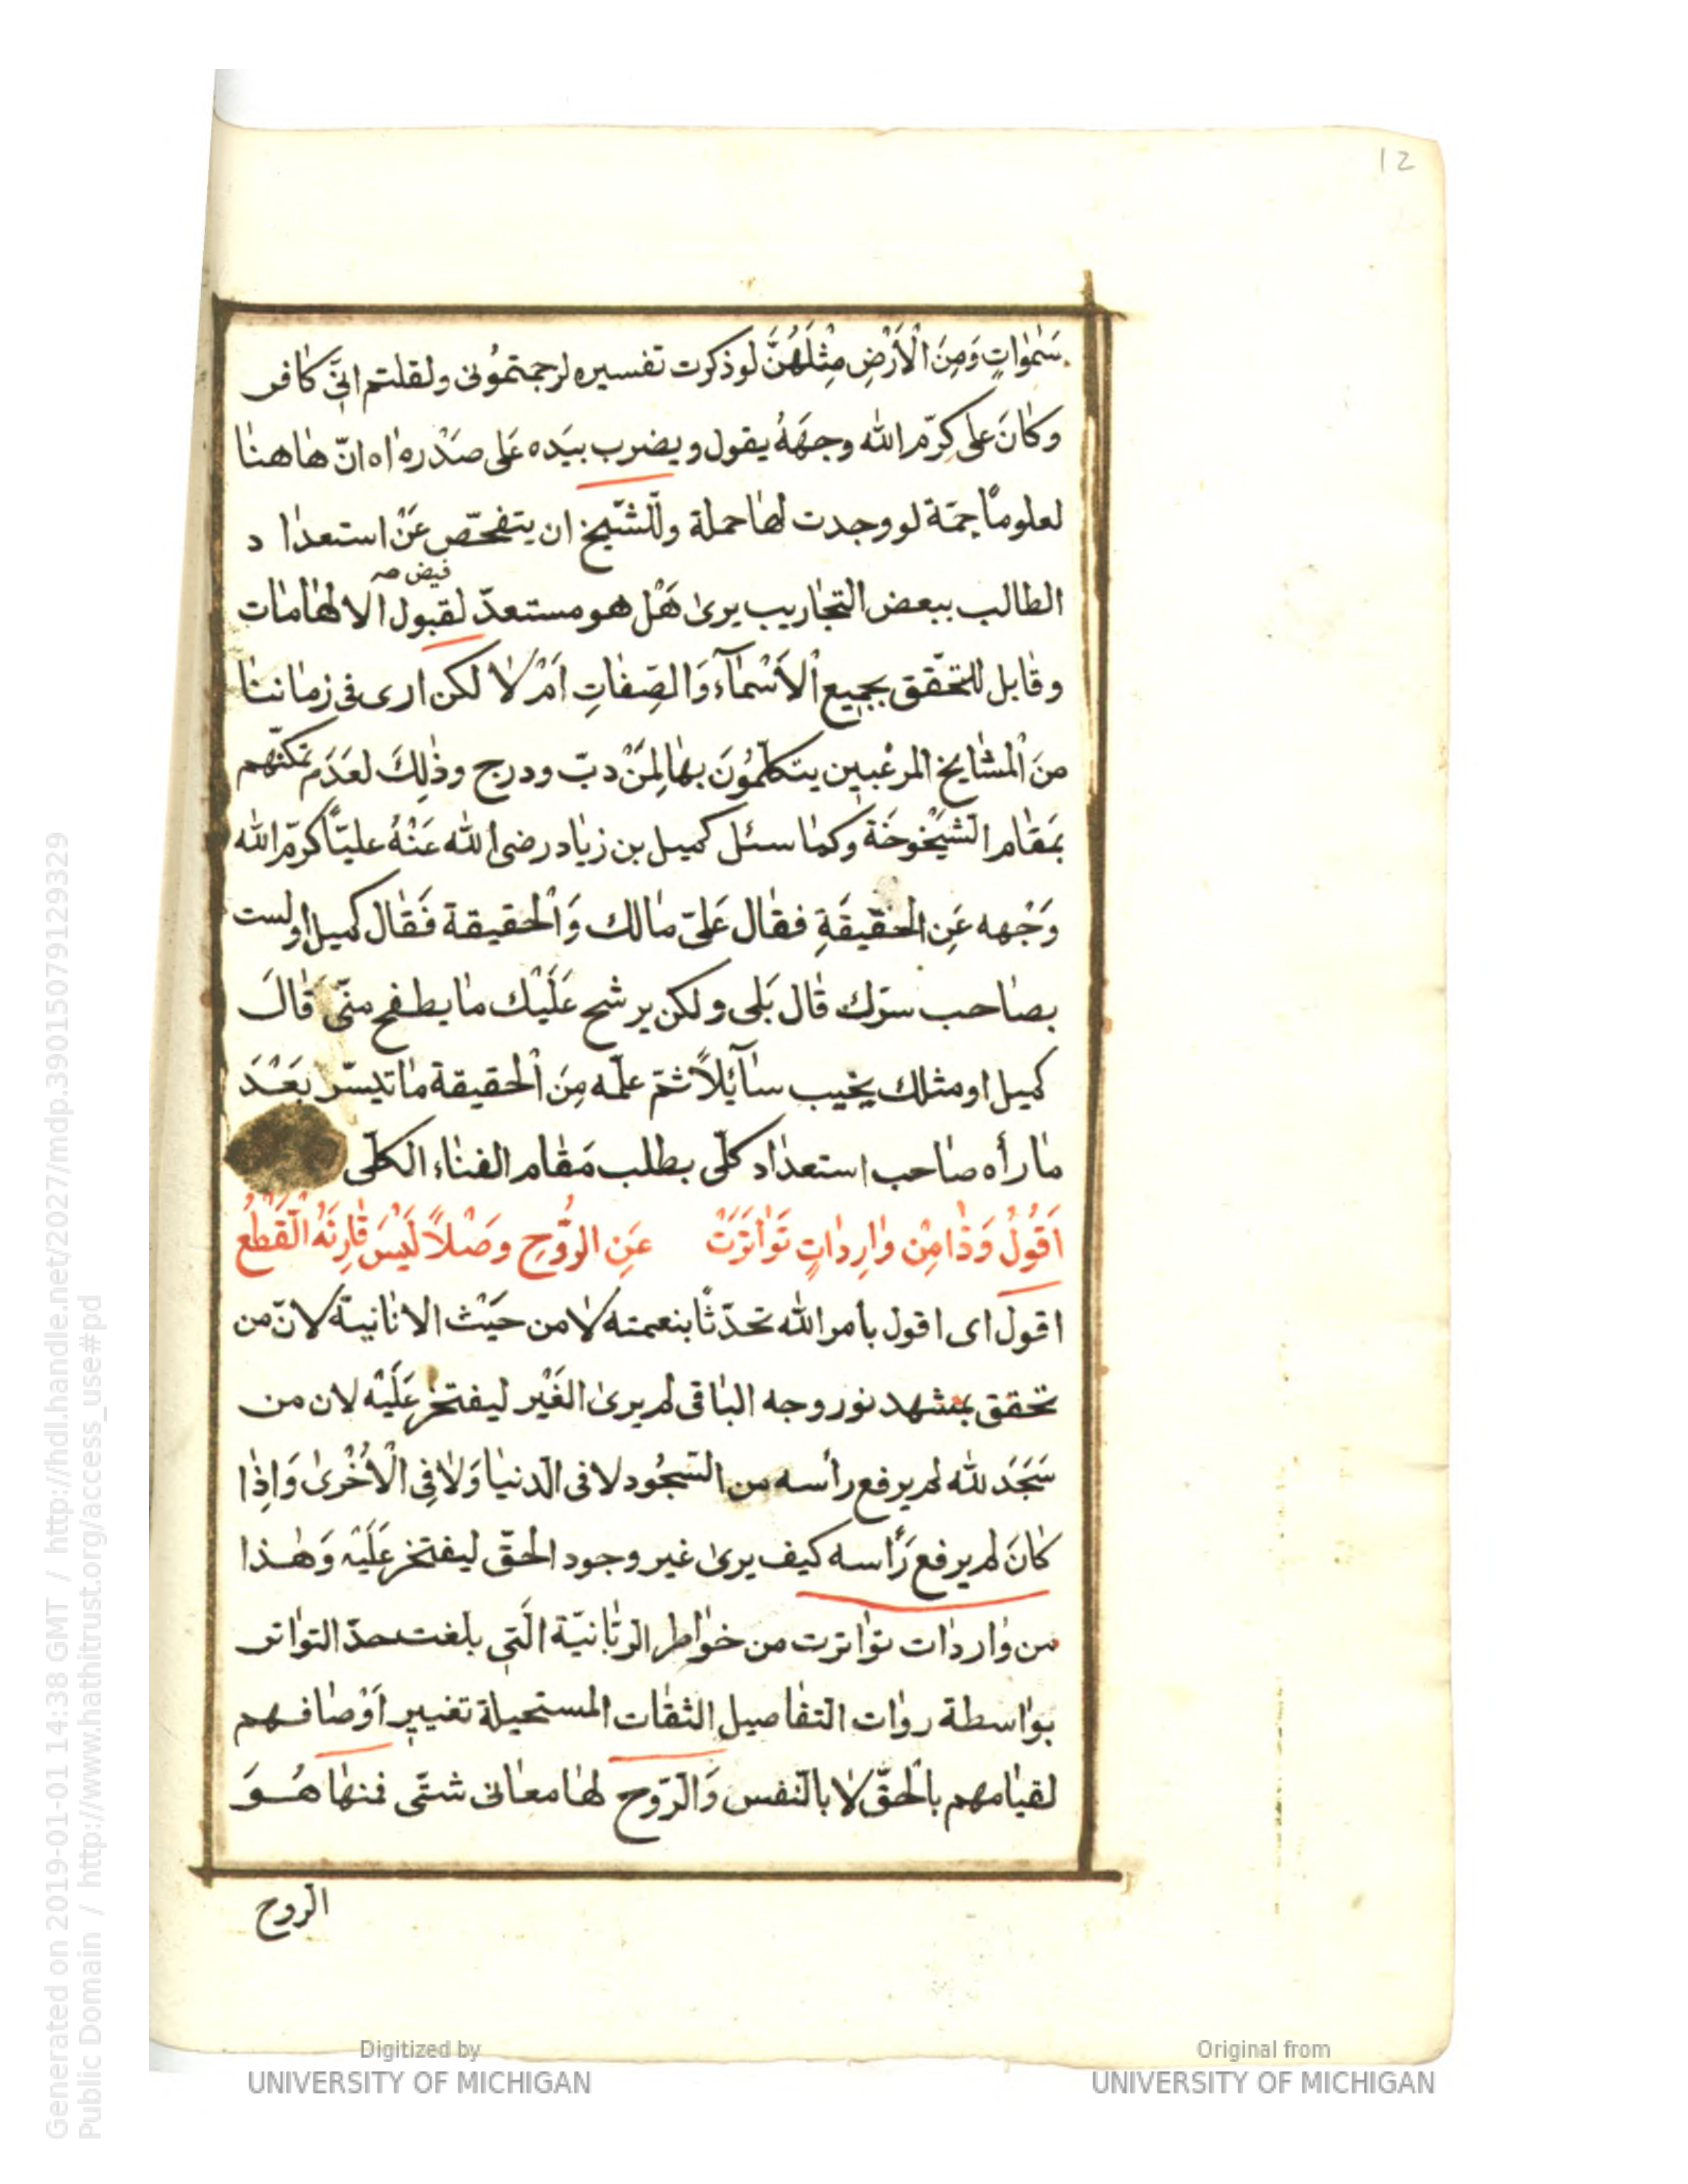 12
سَمٰوٰاتٍ وَمِنَ الْأَرْضِ مِثْلَهُنَّ لو ذكرت تفسيره لرجمتمُونى ولقلتم انّى كٰافر
وكٰانَ على كرّم الله وجهَهُ يقول ويضرب بيَده عَلى صَدْره اٰه انّ هٰاهنٰا
لعلومًا جمّة لو وجدت لهٰا حملة وللشّيخ ان يتفحّص عَنْ استعدٰا د
فيض صه
الطالب ببعض التجٰاريب يرىٰ هَلْ هو مستعدّ لقبول الالهٰامٰات
وقٰابل للتحَقّق بجميع الْأَسْمٰآءِ وَالصِّفٰاتِ اَمْ لٰا لكن ارى فى زمٰاننٰا
منَ الْمشٰايخ المرغبين يتكلّمُونَ بهٰا لِمَنْ دبّ ودرج وذٰلِكَ لعَدَم تمكنّهم
بمَقٰام الشّيْخوخَة وكمٰا سئل كميل بن زيٰاد رضى الله عَنْهُ عليًّا كرّم الله
وَجْهه عَنِ الحَقيقَةِ فقٰال عَلىّ مٰالك وَالْحقيقة فَقٰال كميل اولست
بصٰاحب سرّك قٰال بَلى ولكن يرشح عَلَيْك مٰا يطفح منّى قٰالَ
كميل او مثلك يخيب سٰآئِلًا ثمّ علّمه مِنَ الْحقيقة مٰا تيسّر بعَْدَ
مٰا رأه صٰاحب استعدٰاد كلّى بطلب مَقٰام الفنٰاء الكلّى
اَقُولُ وَذٰا مِنْ وٰارِدٰاتٍ تَوٰاتَرَتْ عَنِ الرُّوحِ وَصْلًا لَيْسَ قٰارِنَهُ الْقَطْعُ
اقول اى اقول بأمر الله تحدّثًا بنعمته لٰا من حيَْث الانٰانيّة لانّ من
تحقق بمشهد نور وجه البٰاقى لم يرىٰ الغَيْر ليفتخر عَلَيْه لان من
سَجَدَ لله لم يرفع رأسه من السّجُود لا فى الدنيٰا وَلٰا فِى الْأُخْرىٰ وَاِذٰا
كٰانَ لم يرفع رَأسه كيف يرىٰ غير وجود الحقّ ليفتخر عَلَيْهِ وَهٰذا
من وٰاردٰات توٰاترت من خوٰاطر الربّٰانيّة الَّتِى بلغت حدّ التوٰاتر
بوٰاسطة روٰات التفٰاصيل الثقٰات المستحيلة تغيير اَوْصٰافهم
لقيٰامهم بالْحقّ لٰا بالنّفس وَالرّوح لهٰا معٰانى شتّى فمنهٰا هُوَ
الروح
Generated on 2019-01-01 14:38 GMT / http://hdl.handle.net/2027/mdp.39015079129329
Public Domain / http://www.hathitrust.org/access_use#pd
Digitized by
UNIVERSITY OF MICHIGAN
Original from
UNIVERSITY OF MICHIGAN